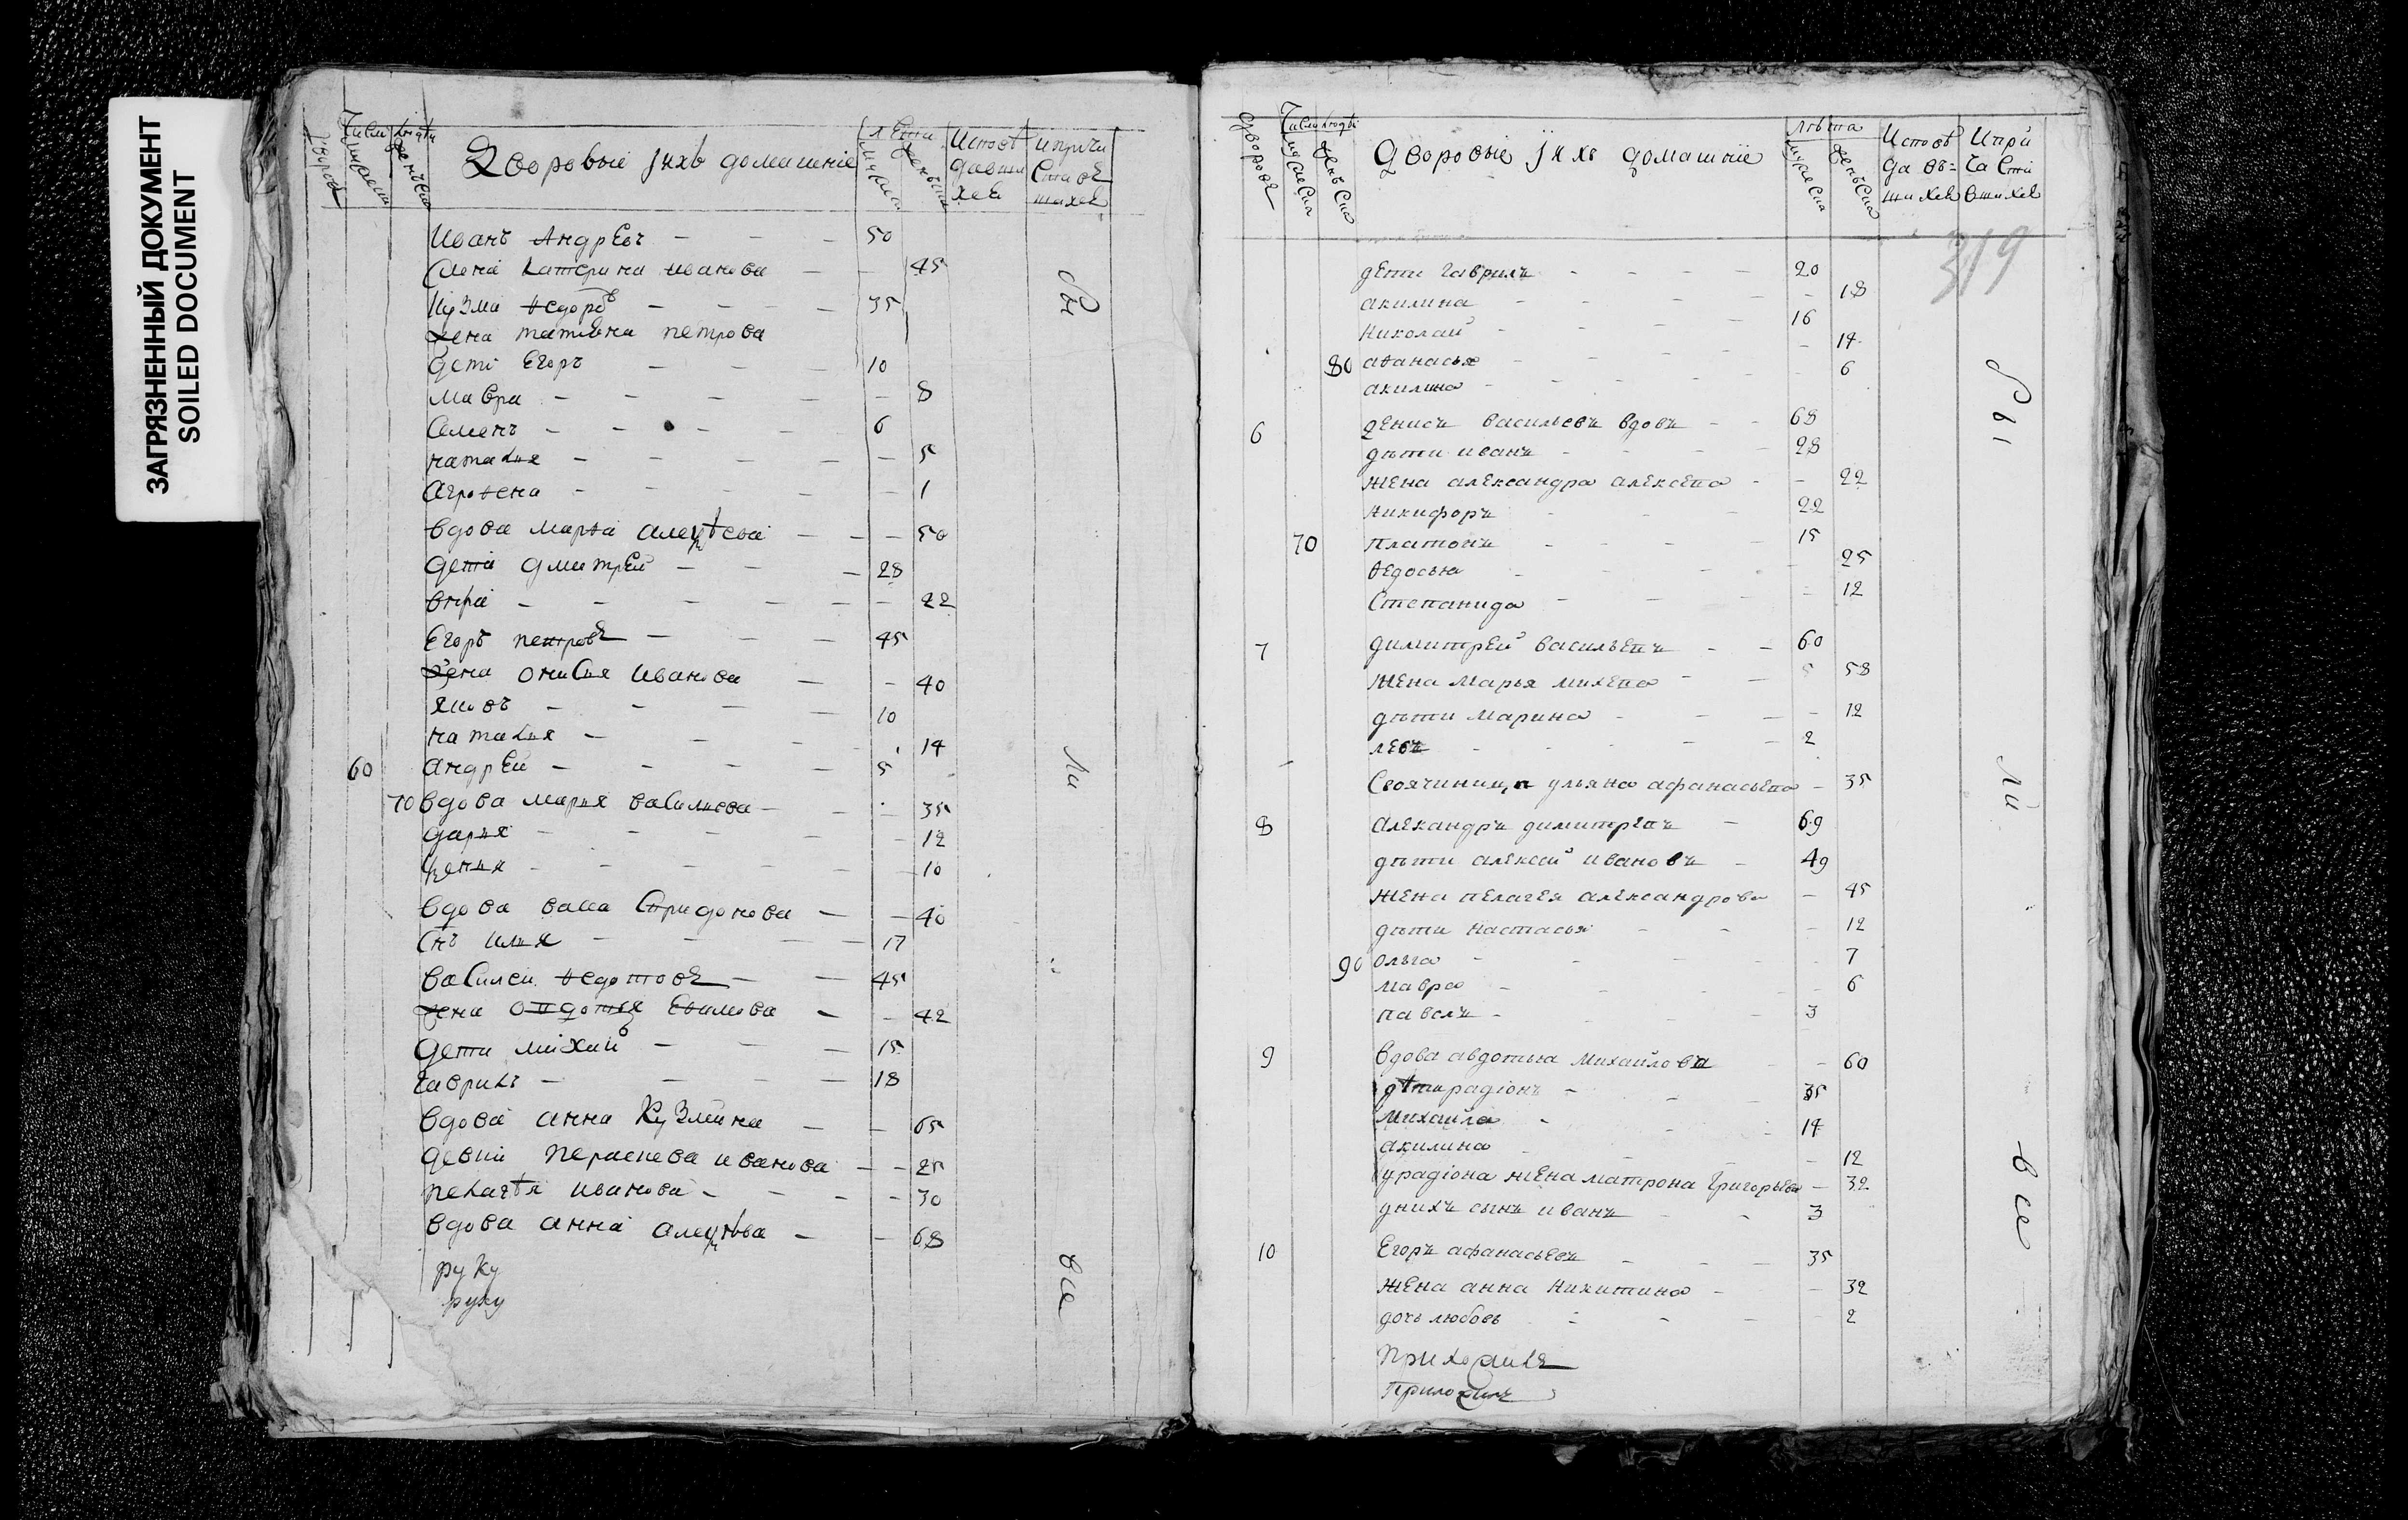 ЗАГРЯЗНЕННЫЙ ДОКУМЕНТ
SOILED DOCUMENT
Дворовые ихъ домашніе
Лета
мужеска
женска
Исповѣ
давши
хсѣ
и причи
ставш
ихсѣ
Иванъ Андреевъ 50
Жена Катерина Иванова 45
Кузма Ѳедоровъ 35
Жена татиѣна петрова
Дети Егоръ 10
Мавра 8
Семенъ 6
наталия 5
Агроѳена 1
вдова марѳа алеѯѣева 50
дети дмитрей 28
вѣра 22
Егоръ петровъ 45
жена онисия иванова 40
яковъ 10
наталия 14
60 андрей 5
70 вдова мария василиева 35
дария 12
ѯения 10
вдова васса спридонова 40
снъ илия 17
василеи ѳедотовъ 45
жена овдотия Еѳимова 42
дети михаи 15
гаврилъ 18
вдова анна Кузмина 65
девки пераскева иванова 25
пелагѣя иванова 30
вдова анна алеѯѣва 68
руку
руку
Бы
ли
все
дворовъ
Число людей
мужеска
женска
дворовые ихъ домашніе
Лѣта
мужеска
женска
Исповѣ
давъ=
шихсѣ
И при
частi
вшихсѣ
319
дѣти гаврилъ 20
акилина 18
Николай 16
80 аѳанасья 14
акилина 6
6 денисъ васильевъ вдовъ 68
дѣти иванъ 28
жена александра алексева 22
Никифоръ 22
70 платонъ 15
ѳедосья 25
Степанида 12
7 димитрей васильевъ 60
жена марья михева 58
дѣти марина 12
левъ 2
Своячиница ульяна афанасьева 35
8 Александръ димитревъ 69
дѣти алексей ивановъ 49
жена пелагея александрова 45
дѣти настасья 12
90 ольга 7
мавра 6
павелъ 3
9 вдова авдотья михайлова 60
дѣти радiонъ 35
михайла 14
акилина 12
у радiона жена матрона григорьева 32
у нихъ сынъ иванъ 3
10 Егоръ афанасьевъ 35
жена анна никитина 32
дочь любовь 2
Бы
ли
все